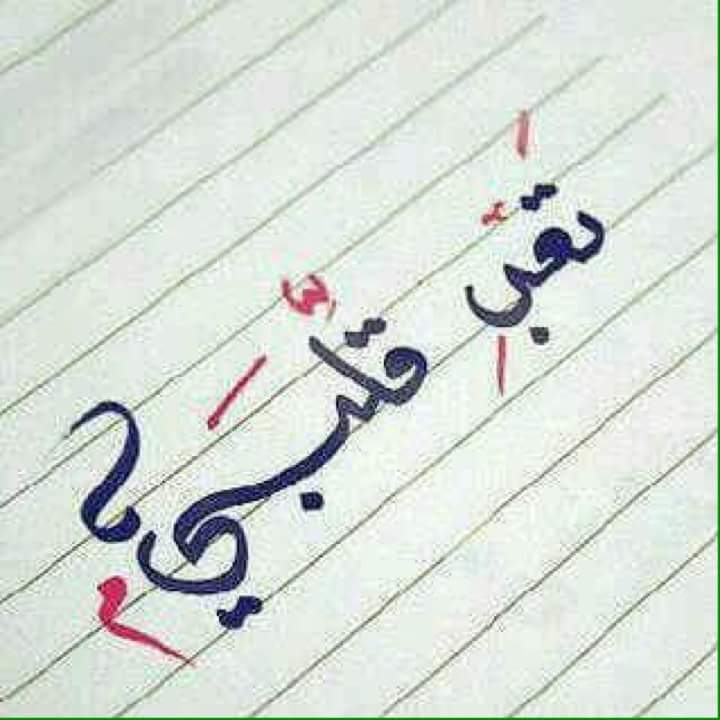 تعب قلبي